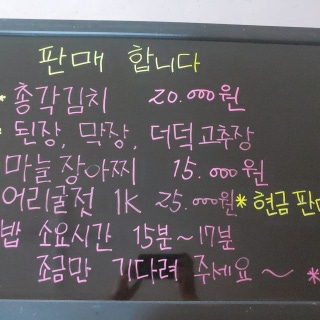 판매 합니다
* 총각김치 20.000원
* 된장, 막장, 더덕고추장
마늘장아찌 15.000원
어리굴젓 1K 25.000원 * 현금판
밥 소요시간 15분~17분
조금만 기다려 주세요~ *